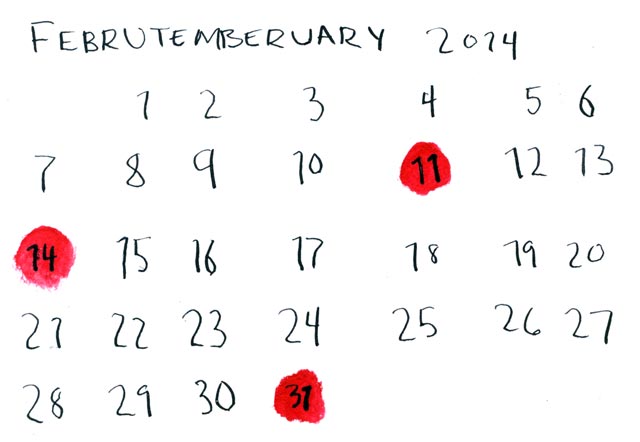 FEBRUTEMBERUARY 2014
1 2 3 4 5 6
7 8 9 10 11 12 13
14 15 16 17 18 19 20
21 22 23 24 25 26 27
28 29 30 31